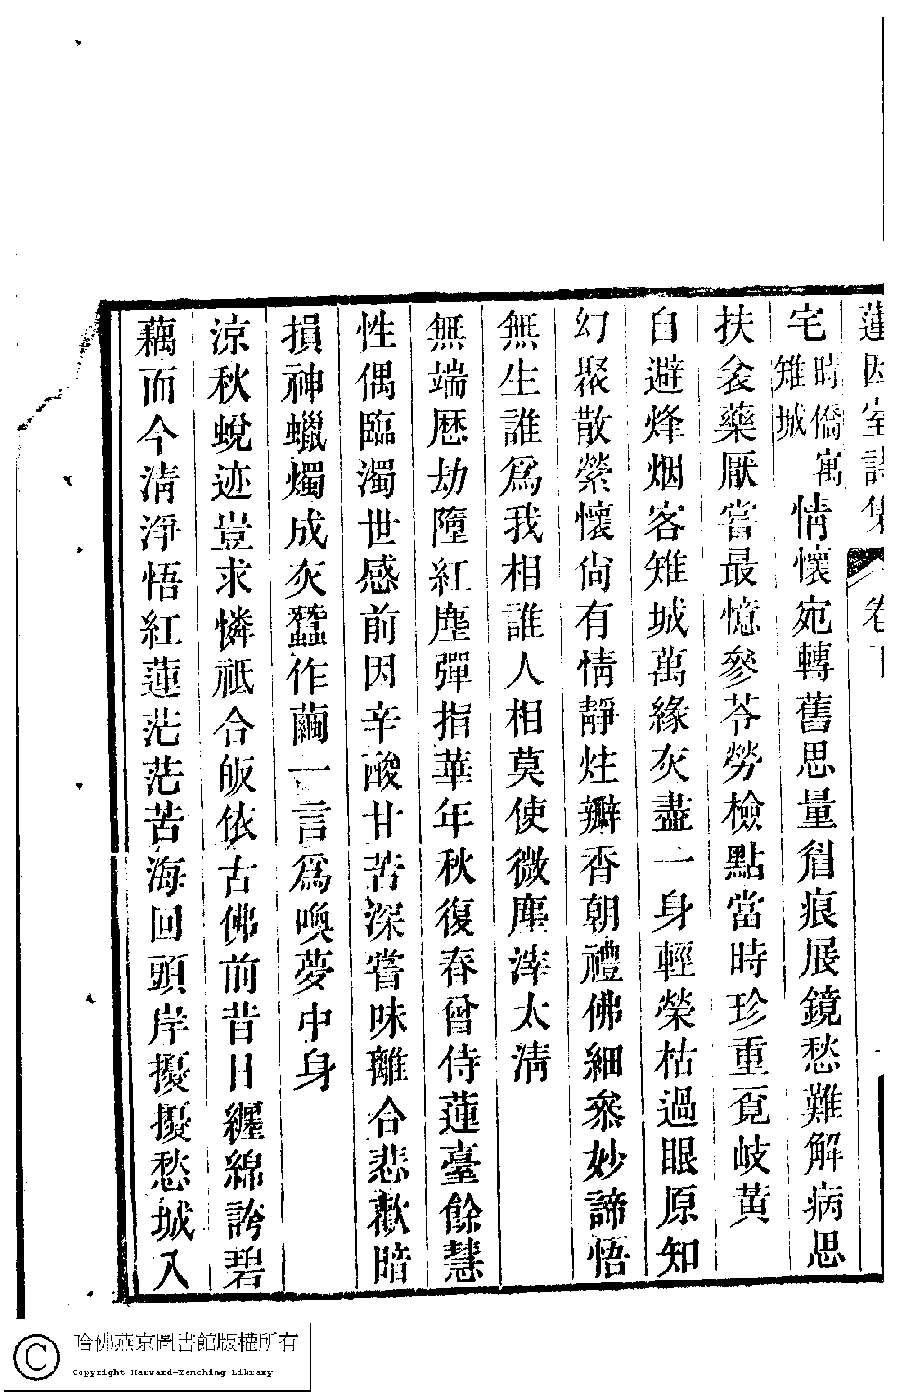 蓮因室詩集 卷下
宅時僑寓雉城情懷宛轉舊思量眉痕展鏡愁難解病思
扶衾藥厭嘗最憶參苓勞檢點當時珍重覓岐黃
自避烽烟客雉城萬緣灰盡一身輕榮枯過眼原知
幻聚散縈懷尙有情靜炷瓣香朝禮佛細叅妙諦悟
無生誰爲我相誰人相莫使微塵滓太淸
無端歷劫墮紅塵彈指華年秋復春曾侍蓮臺餘慧
性偶臨濁世感前因辛酸甘苦深嘗味離合悲歡暗
損神蠟燭成灰蠶作繭一言爲喚夢中身
涼秋蛻迹豈求憐祗合皈依古佛前昔日纏綿誇碧
藕而今淸淨悟紅蓮茫茫苦海回頭岸擾擾愁城入
哈佛燕京圖書館版權所有
Copyright Harvard-Yenching Library